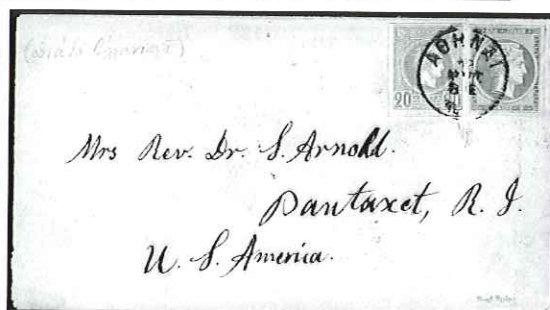 20
ΑΘΗΝΑΙ
Mrs Rev. Dr. S. Arnold.
Pautaxet, R. I.
U. S. America.